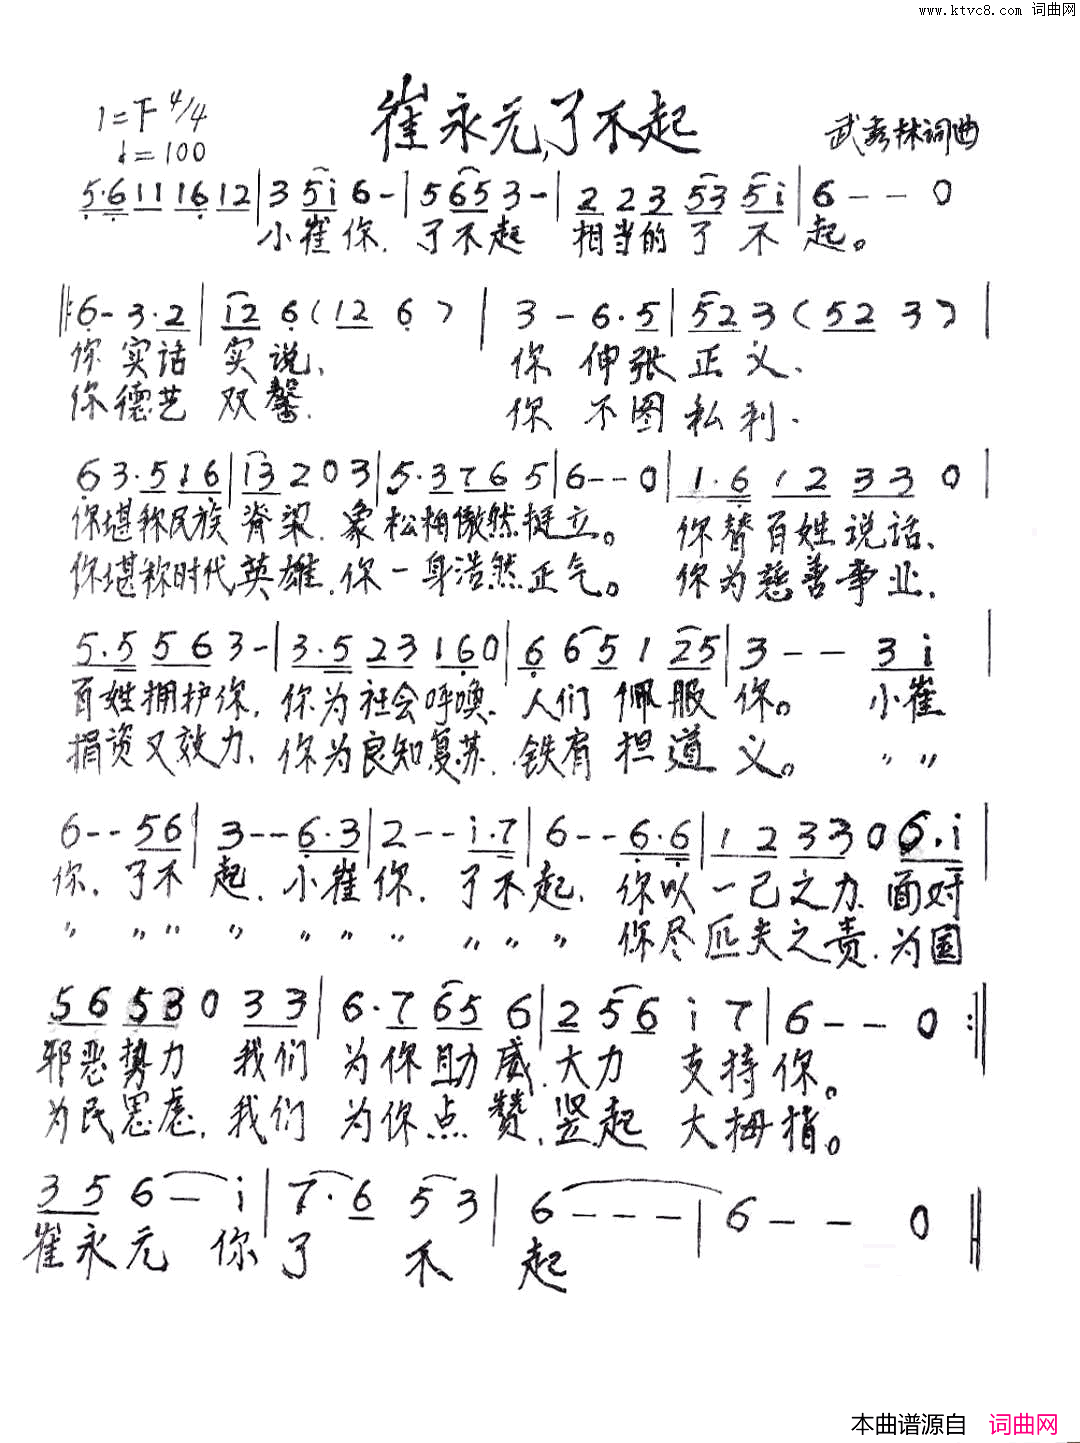 www.ktvc8.com 词曲网
崔永元,了不起
1=F 4/4
♩=100
武秀林词曲
5·6 11 16 12 | 3 5i 6 - | 5 65 3 - | 2 2 3 53 5i | 6 - - 0
小崔你,了不起 相当的了不起。
‖: 6 - 3·2 | 12 6 (12 6) | 3 - 6·5 | 52 3 (52 3) |
你实话实说、 你伸张正义、
你德艺双馨. 你不图私利.
6 3·5 16 | 13 2 0 3 | 5·3 76 5 | 6 - - 0 | 1·6 12 33 0 |
你堪称民族脊梁.象松柏傲然挺立。 你替百姓说话、
你堪称时代英雄,你一身浩然正气。 你为慈善事业,
5·5 56 3 - | 3·5 23 16 0 | 6 65 1 25 | 3 - - 3i |
百姓拥护你,你为社会呼唤.人们佩服你。 小崔
捐资又效力,你为良知复苏.铁肩担道义。 〃 〃
6 - - 56 | 3 - - 6·3 | 2 - - i·7 | 6 - - 6·6 | 12 33 0 6·i |
你,了不起,小崔你,了不起,你以一己之力,面对
〃 〃 〃 〃 〃 〃 〃 〃 〃 〃 你尽匹夫之责,为国
56 53 0 33 | 6·7 65 6 | 2 56 i 7 | 6 - - 0 :‖
邪恶势力 我们为你助威.大力支持你。
为民思虑,我们为你点赞,竖起大拇指。
3 5 6 - i | 7·6 5 3 | 6 - - - | 6 - - 0 ‖
崔永元你了不起
本曲谱源自 词曲网